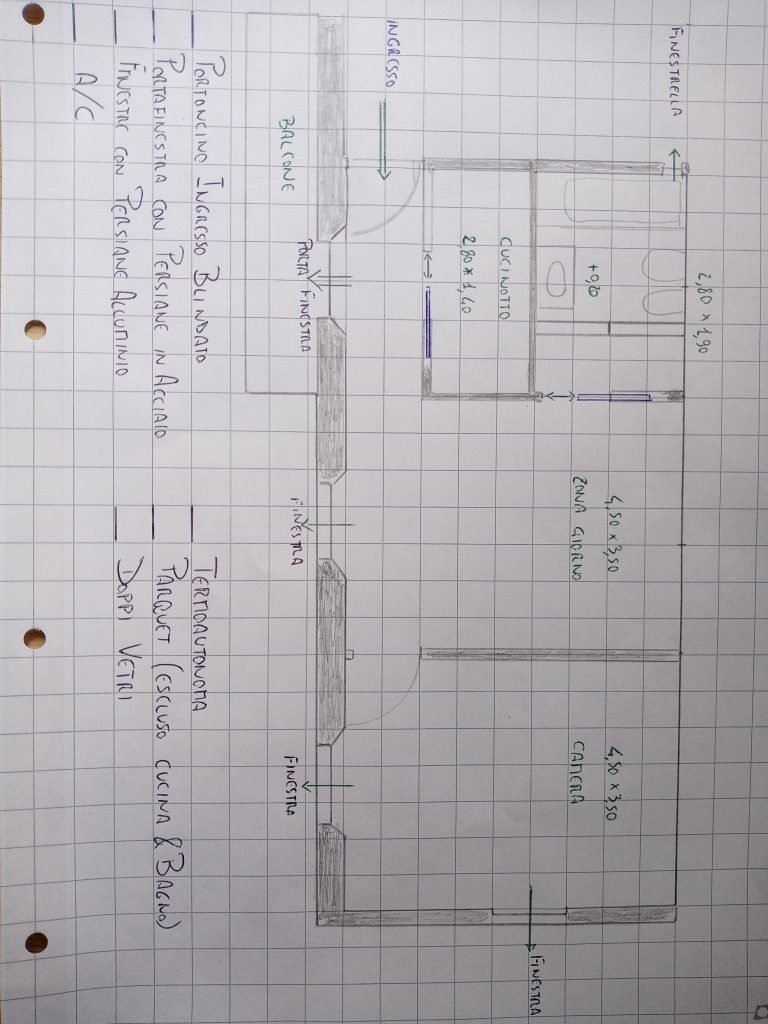 FINESTRELLA
INGRESSO
2,80 x 1,90
+0,20
CUCINOTTO
2,80 x 1,40
BALCONE
PORTA FINESTRA
4,50 x 3,50
ZONA GIORNO
FINESTRA
4,50 x 3,50
CAMERA
FINESTRA
FINESTRA
PORTONCINO INGRESSO BLINDATO
PORTAFINESTRA CON PERSIANE IN ACCIAIO
FINESTRE CON PERSIANE ALLUMINIO
A/C
TERMOAUTONOMA
PARQUET (ESCLUSO CUCINA & BAGNO)
DOPPI VETRI